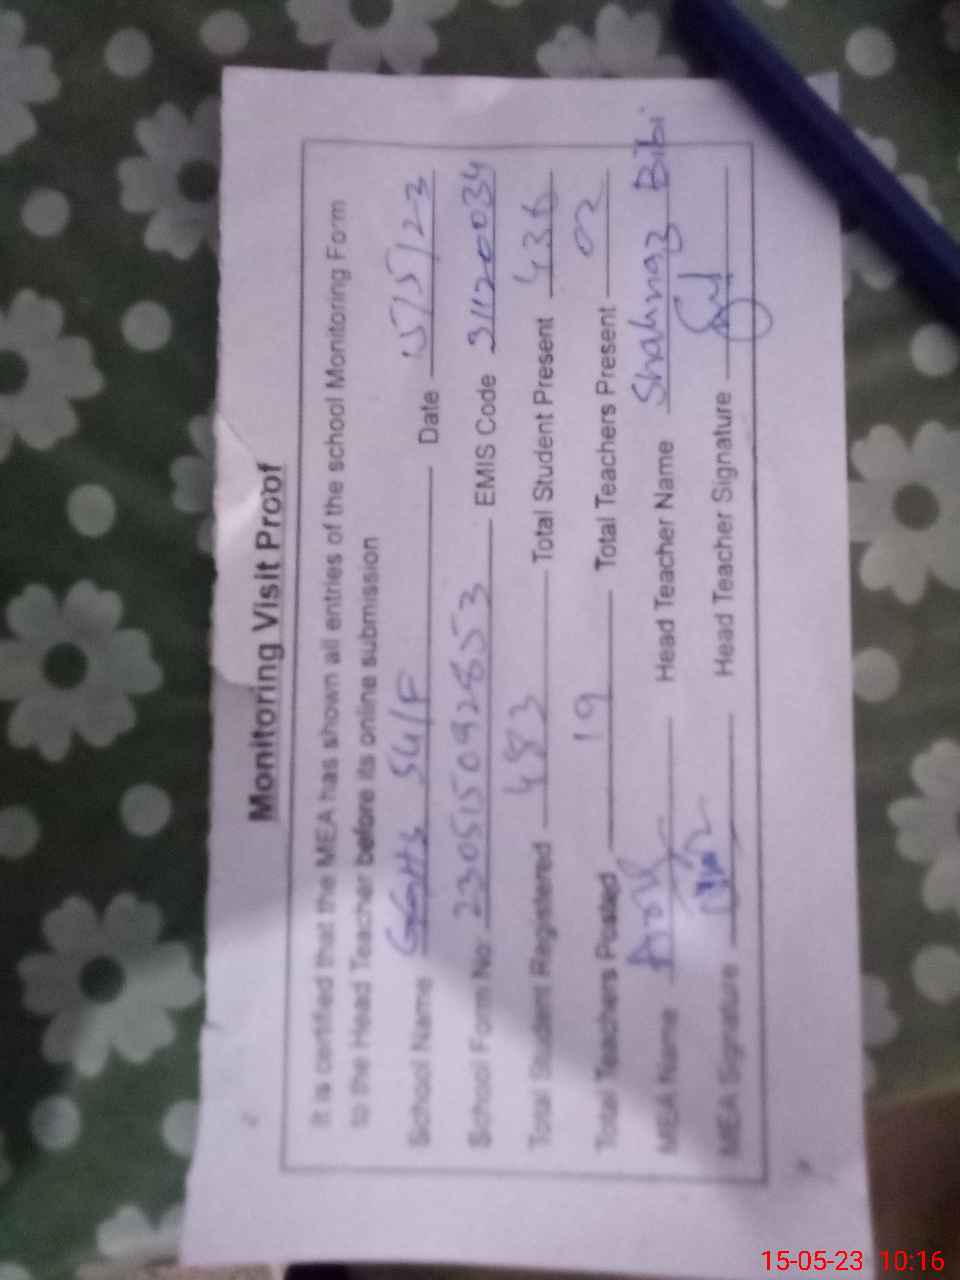 Monitoring Visit Proof
It is certified that the MEA has shown all entries of the school Monitoring Form
to the Head Teacher before its online submission
School Name GGHS 54/P Date 15/5/23
School Form No. 230515092853 EMIS Code 31120034
Total Student Registered 483 Total Student Present 436
Total Teachers Posted 19 Total Teachers Present 02
MEA Name Head Teacher Name Shahnaz Bibi
MEA Signature Head Teacher Signature
15-05-23 10:16